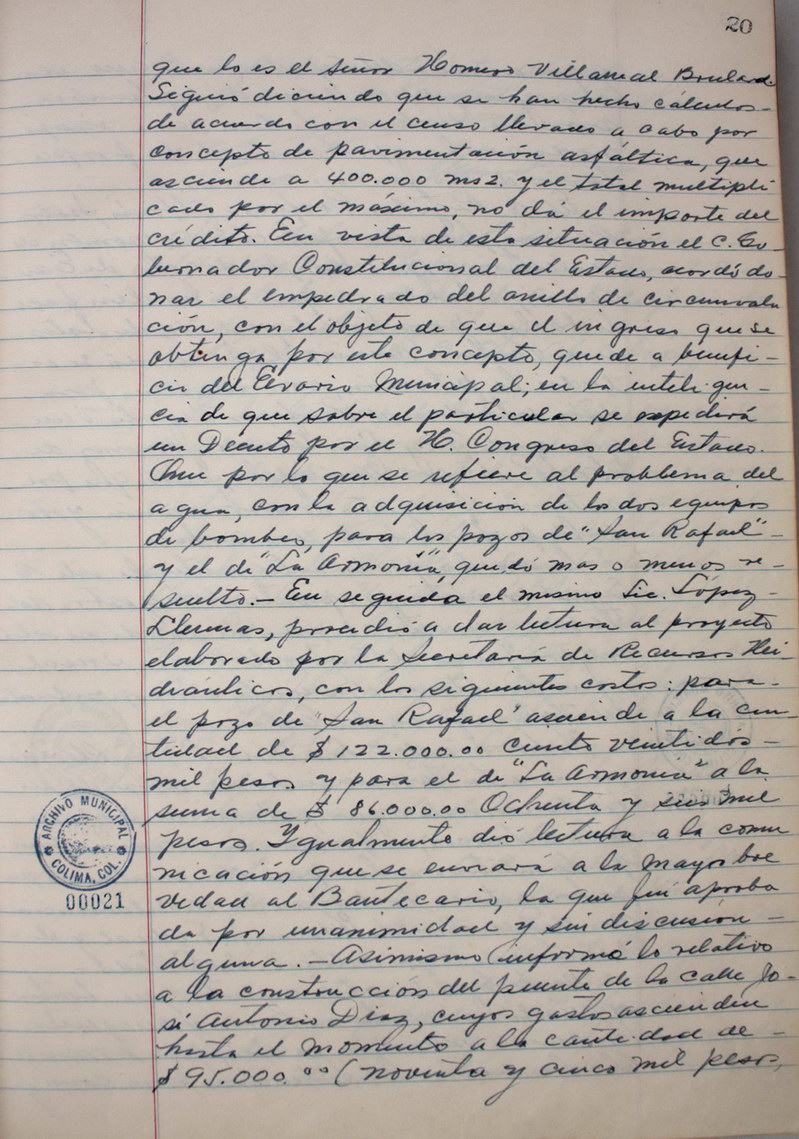 20
que lo es el Señor Homero Villarreal Brulard.
Siguió diciendo que se han hecho cálculos-
de acuerdo con el censo llevado a cabo por
concepto de pavimentación asfáltica, que
asciende a 400.000 ms2. y el total multipli
cado por el máximo, no dá el importe del
crédito. En vista de esta situación el C. Go-
bernador Constitucional del Estado, acordó do-
nar el empedrado del anillo de circunvala
ción, con el objeto de que el ingreso que se
obtenga por este concepto, quede a benefi-
cio del Erario Municipal; en la inteligen-
cia de que sobre el particular se expedirá
un Decreto por el H. Congreso del Estado.
Que por lo que se refiere al problema del
agua, con la adquisición de los dos equipos
de bombeo, para los pozos de "San Rafael"-
y el de "La Armonía", quedó mas o menos re-
suelto.- En seguida el mismo Lic. López-
Llerenas, procedió a dar lectura al proyecto
elaborado por la Secretaría de Recursos Hi-
dráulicos, con los siguientes costos: para-
el pozo de "San Rafael" asciende a la can-
tidad de $ 122.000.00 ciento veintidos-
mil pesos y para el de "La Armonía" a la
suma de $ 86.000.00 Ochenta y seis mil
pesos. Ygualmente dió lectura a la comu
nicación que se enviará a la mayor bre
vedad al Banhecario, la que fué aproba
da por unanimidad y sin discusión-
alguna.- Asimismo informó lo relativo
a la construcción del puente de la calle Jo-
sé Antonio Díaz, cuyos gastos ascienden
hasta el momento a la cantidad de-
$ 95.000.00 (noventa y cinco mil pesos,
ARCHIVO MUNICIPAL
COLIMA, COL.
00021